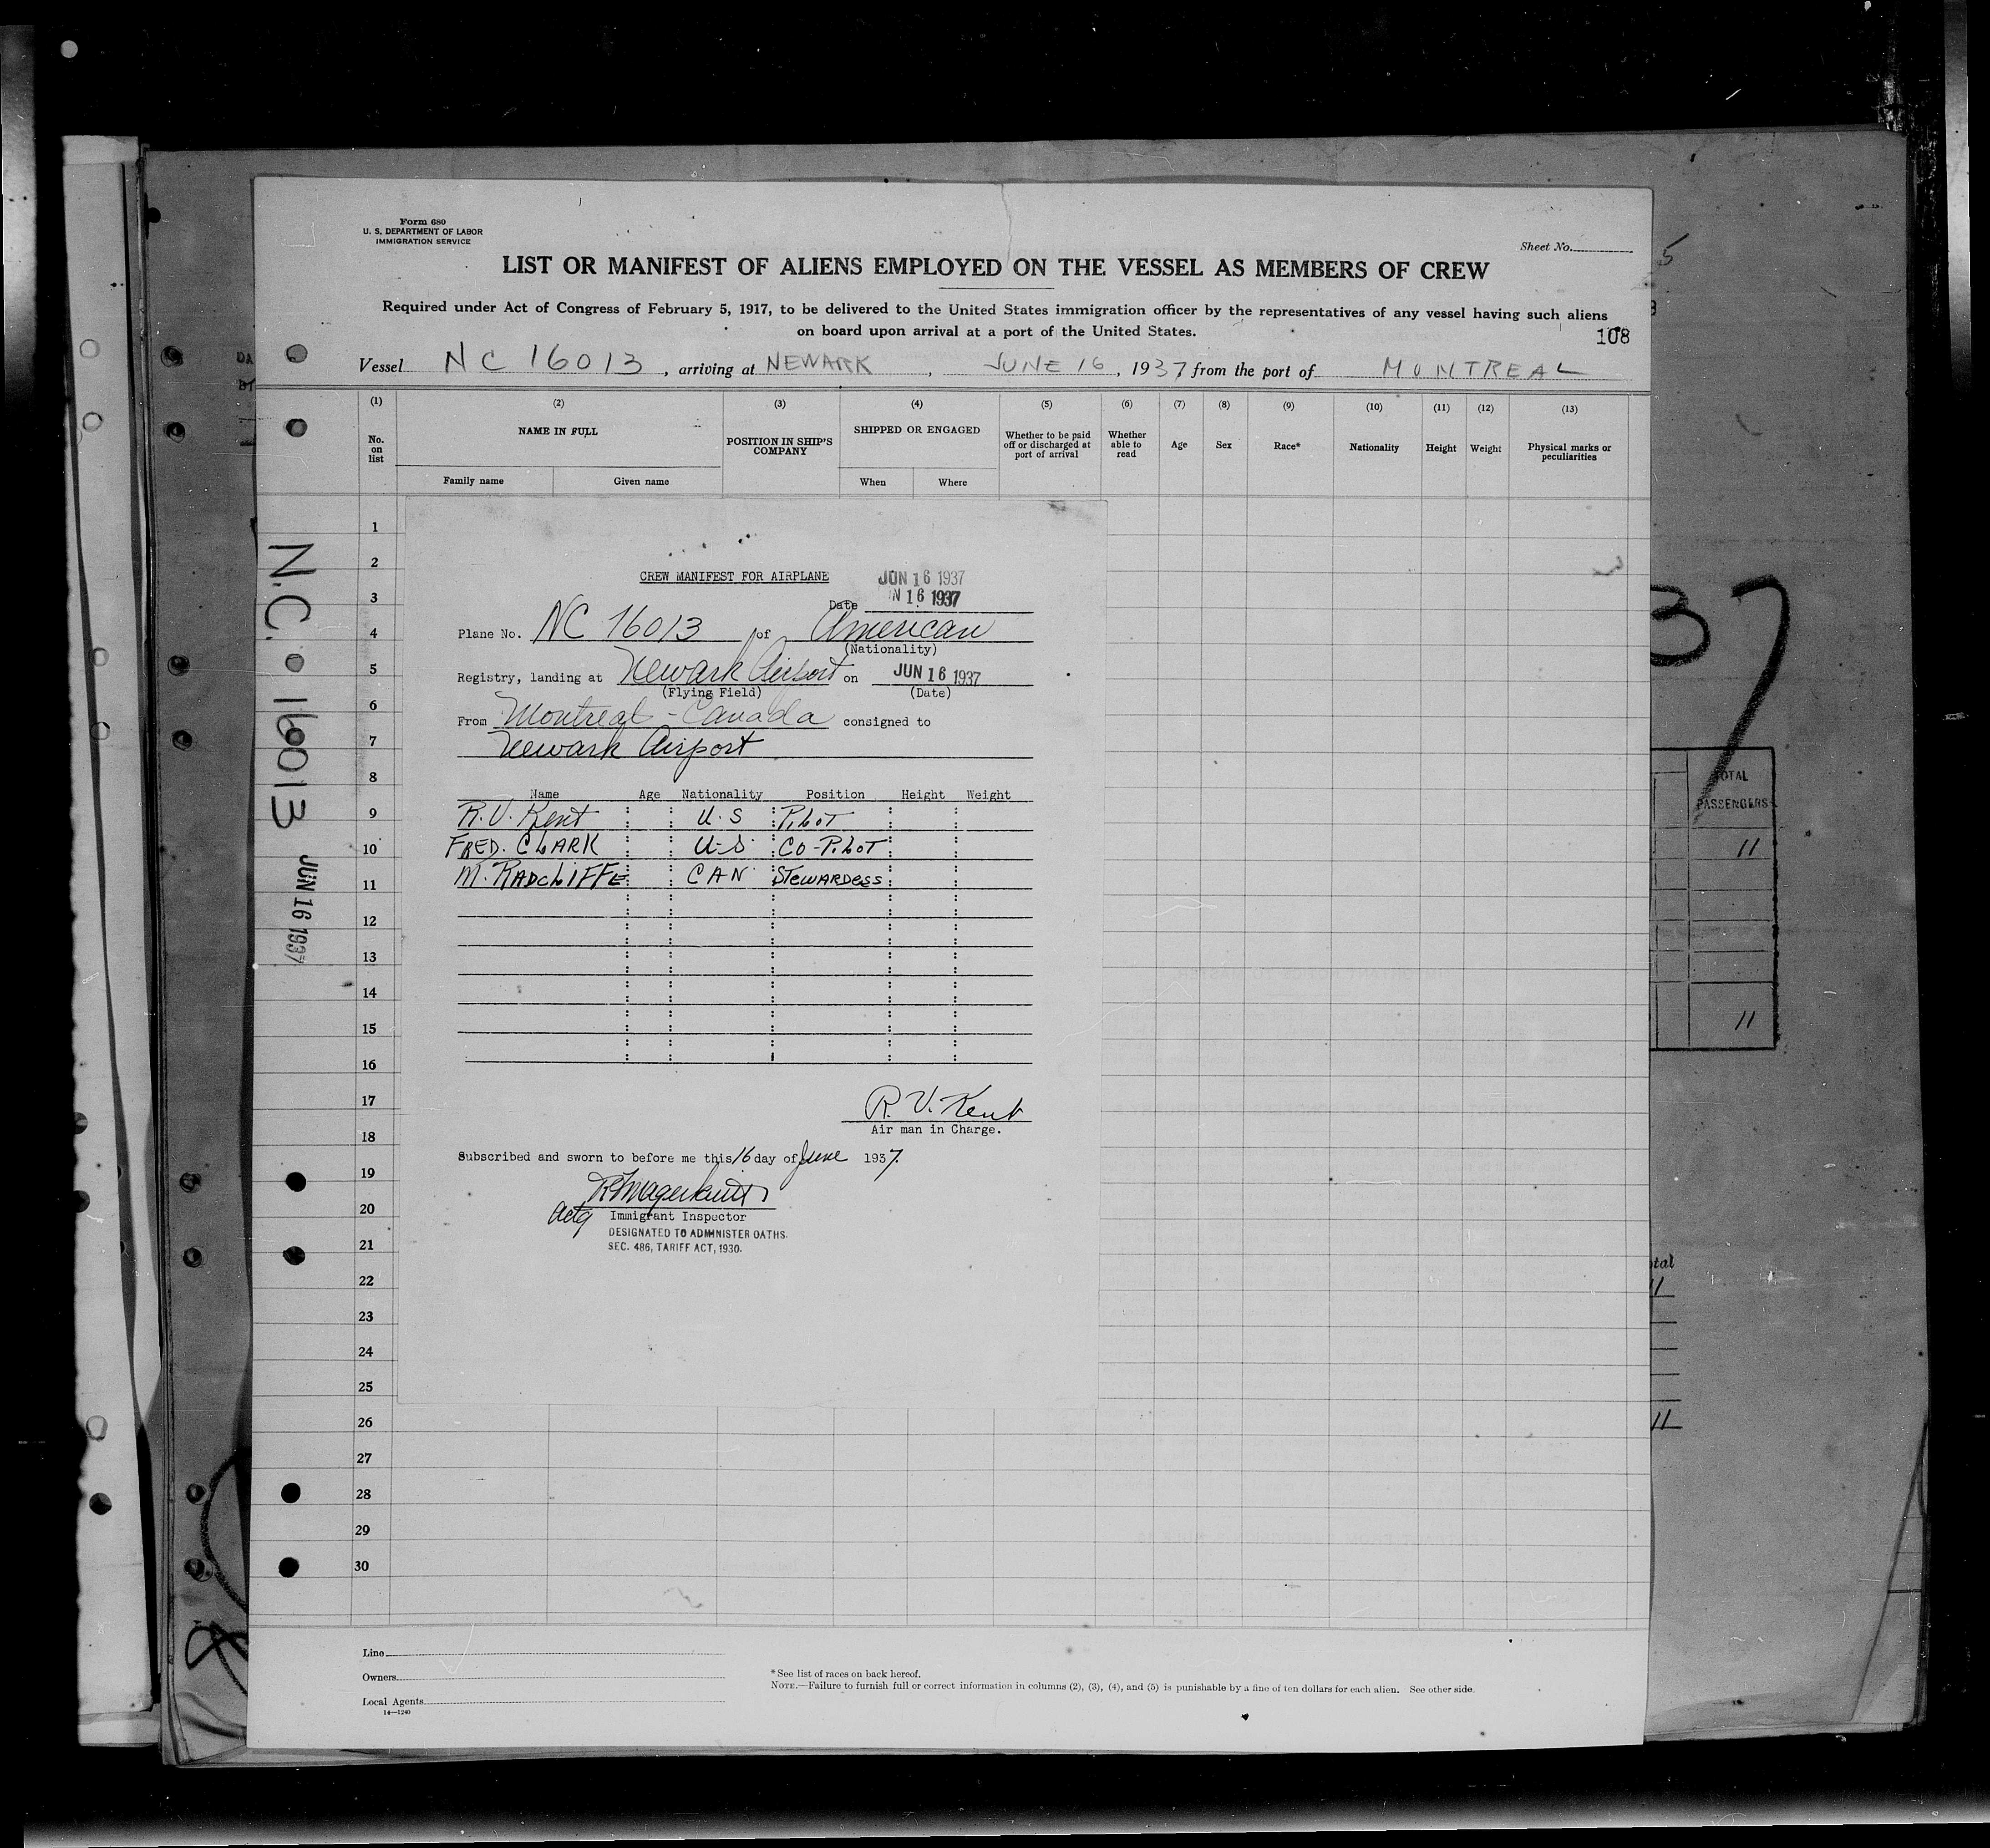 Form 680
U. S. DEPARTMENT OF LABOR
IMMIGRATION SERVICE
Sheet No.
LIST OR MANIFEST OF ALIENS EMPLOYED ON THE VESSEL AS MEMBERS OF CREW
Required under Act of Congress of February 5, 1917, to be delivered to the United States immigration officer by the representatives of any vessel having such aliens
on board upon arrival at a port of the United States.
108
Vessel NC 16013, arriving at NEWARK, JUNE 16, 1937 from the port of MONTREAL
(1) (2) (3) (4) (5) (6) (7) (8) (9) (10) (11) (12) (13)
No. on list NAME IN FULL POSITION IN SHIP'S COMPANY SHIPPED OR ENGAGED Whether to be paid off or discharged at port of arrival Whether able to read Age Sex Race* Nationality Height Weight Physical marks or peculiarities
Family name Given name When Where
1
2
3
4
5
6
7
8
9
10
11
12
13
14
15
16
17
18
19
20
21
22
23
24
25
26
27
28
29
30
N.C. 16013 JUN 16 1937
CREW MANIFEST FOR AIRPLANE
JUN 16 1937
Date N 16 1937
Plane No. NC 16013 of American
(Nationality)
Registry, landing at Newark Airport on JUN 16 1937
(Flying Field) (Date)
From Montreal - Canada consigned to
Newark Airport
Name Age Nationality Position Height Weight
R. V. Kent U.S PiLoT
FRED. CLARK U-S CO-PiLoT
M. RADCLIFFE CAN STEWARDESS
R. V. Kent
Air man in Charge.
Subscribed and sworn to before me this 16 day of June 1937.
Actg Immigrant Inspector
DESIGNATED TO ADMINISTER OATHS.
SEC. 486, TARIFF ACT, 1930.
Line
Owners
Local Agents
14—1240
*See list of races on back hereof.
NOTE.—Failure to furnish full or correct information in columns (2), (3), (4), and (5) is punishable by a fine of ten dollars for each alien. See other side.
5
37
TOTAL
PASSENGERS
11
11
otal
11
11